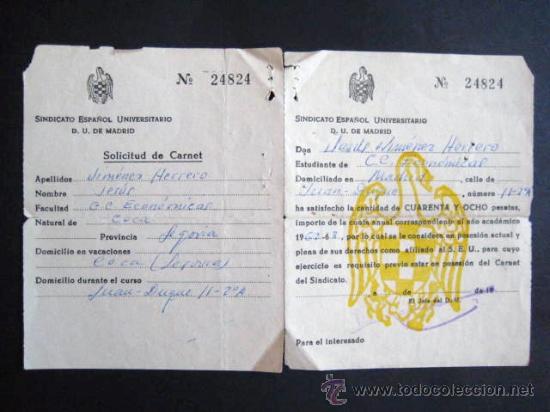 Nº 24824
SINDICATO ESPAÑOL UNIVERSITARIO
D. U. DE MADRID
Solicitud de Carnet
Apellidos Jiménez Herrero
Nombre Jesús
Facultad C.C. Económicas
Natural de Coca
Provincia Segovia
Domicilio en vacaciones
Coca (Segovia)
Domicilio durante el curso
Juan-Duque 11-2ºA
Nº 24824
SINDICATO ESPAÑOL UNIVERSITARIO
D. U. DE MADRID
Don Jesús Jiménez Herrero
Estudiante de C.C. Económicas
Domiciliado en Madrid, calle de
Juan-Duque, número 11-2ºA
ha satisfecho la cantidad de CUARENTA Y OCHO pesetas,
importe de la cuota anual correspondiente al año académico
19 por lo cual se le considera en posesión actual y
plena de sus derechos como afiliado al S. E. U., para cuyo
ejercicio es requisito previo estar en posesión del Carnet
del Sindicato.
a de de 19
El Jefe del D. U.
Para el interesado
todocoleccion.net